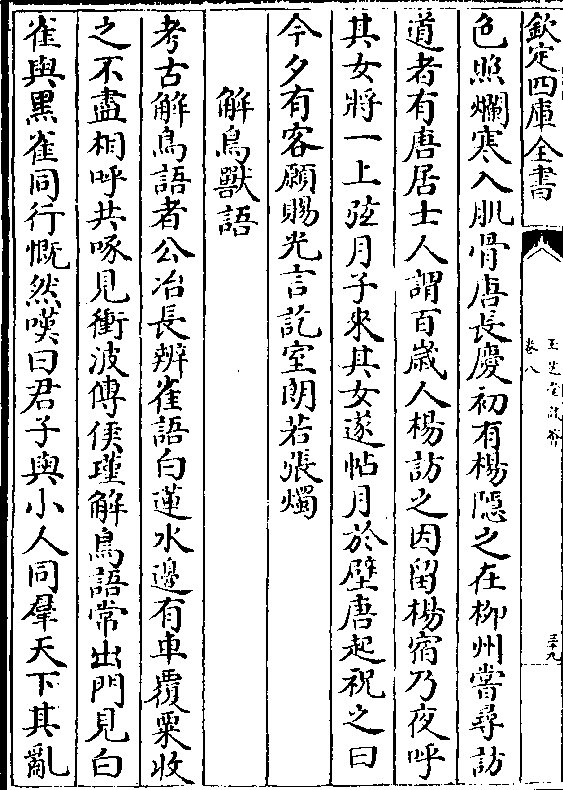 欽定四庫全書
玉芝堂談薈
卷八
三十九
色照爛寒入肌骨唐長慶初有楊隱之在柳州嘗尋訪
道者有唐居士人謂百歲人楊訪之因留楊宿乃夜呼
其女將一上弦月子來其女遂帖月於壁唐起祝之曰
今夕有客願賜光言訖室朗若張燭
解鳥獸語
考古解鳥語者公冶長辨雀語白蓮水邊有車覆粟收
之不盡相呼共啄見衝波傳侯瑾解鳥語常出門見白
雀與黑雀同行慨然嘆曰君子與小人同羣天下其亂